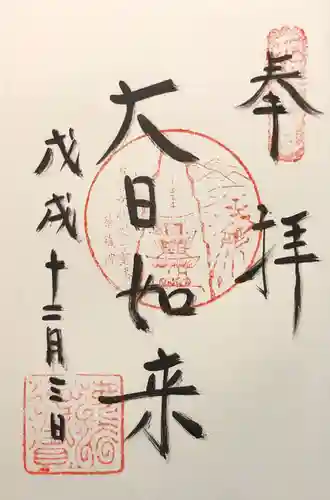 奉拝
大日如来
戊戌十二月三日